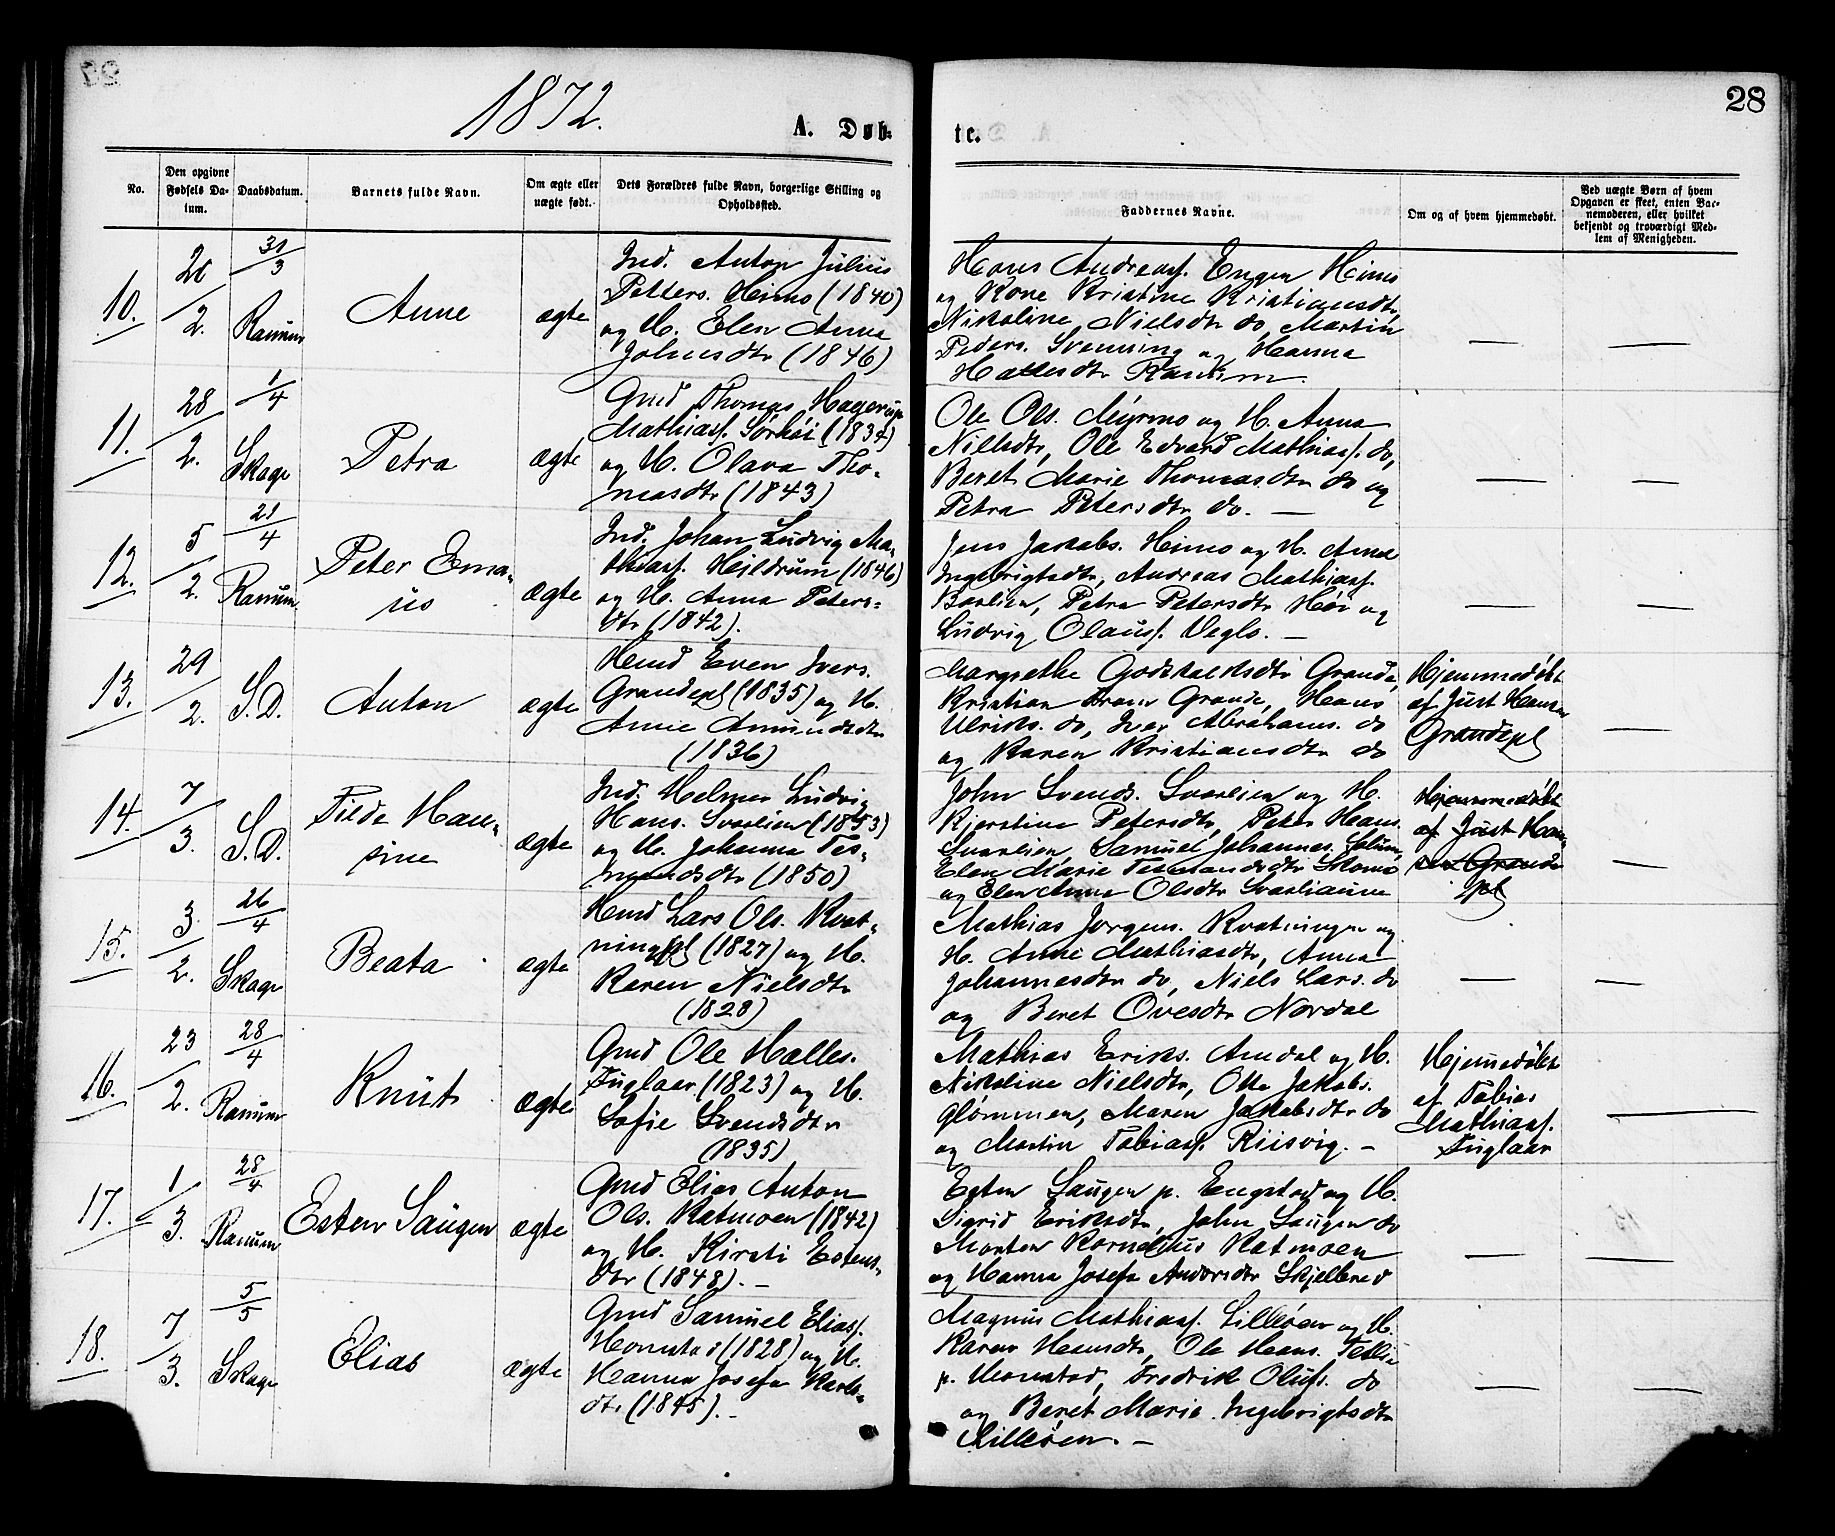 1872.
28
A. Døb-
te.
No.
Den opgivne
Fødsels Da-
tum.
Daabsdatum.
Barnets fulde Navn.
Om ægte eller
uægte født.
Dets Forældres fulde Navn, borgerlige Stilling og
Opholdssted.
Faddernes Navne.
Om og af hvem hjemmedøbt.
Ved uægte Børn af hvem
Opgaven er skeet, enten Bar-
nemoderen, eller hvilket
bekjendt og troværdigt Med-
lem af Menigheden.
10.
26/2.
31/3
Ranum
Anne
ægte
Ind. Anton Julius
Petters. Himo (1840)
og H. Elen Anna
Johnsdtr (1846)
Hans Andreass. Engen Himo
og Kone Kristine Kristiansdtr,
Nikoline Nielsdtr do, Martin
Peders. Svenning og Hanna
Hallesdtr Ranum.
—
—
11.
28/2.
1/4
Skage
Petra
ægte
Gmd Thomas Hagerup
Mathiass. Sørhøi (1834)
og H. Olava Tho-
masdtr (1843)
Ole Ols. Myrmo og H. Anna
Nielsdtr, Ole Edvard Mathiass. do,
Beret Marie Thomasdtr do og
Petra Petersdtr do. —
—
—
12.
5/2.
21/4
Ranum
Peter Ema-
us
ægte
Ind. Johan Ludvig Ma-
thiass. Hildrum (1846)
og H. Anna Peters-
dtr (1842).
Jens Jakobs. Himo og H. Anne
Ingebrigtsdtr, Andreas Mathiass.
Barlien, Petra Petersdtr Høi og
Ludvig Olauss. Veglo. —
—
—
13.
29/2.
S.D.
Anton
ægte
Hmd Even Ivers.
Grandepl (1835) og H.
Anne Amundsdtr
(1836)
Margrethe Godskalksdtr Grande,
Kristian Grande, Hans
Ulriks. do, Iver Abrahams. do
og Karen Kristiansdtr do
Hjemmedøbt
af Just Hansen
Grandepl
—
14.
7/3.
S.D.
Tilda Han-
sine
ægte
Ind. Helmer Ludvig
Hans. Svarlien (1853)
og H. Johanna Tes-
mandsdtr (1850)
John Svends. Svarlien og H.
Kjerstine Petersdtr, Peter Hans.
Svarlien, Samuel Johannes. Solum,
Elen Marie Tesmandsdtr Skomo
og Elen Anna Olsdtr Svarliaunn
Hjemmedøbt
af Just Han-
sen Grande
pl
—
15.
3/2.
26/4
Skage
Beata
ægte
Hmd Lars Ols. Kvat-
ningpl (1827) og H.
Karen Nielsdtr
(1828)
Mathias Jørgens. Kvatningen og
H. Anne Mathiasdtr, Anna
Johannesdtr do, Niels Lars. do
og Beret Ovesdtr Nordal
—
—
16.
23/2.
28/4
Ranum
Knut
ægte
Gmd Ole Halles.
Fuglaar (1823) og H.
Sofie Svendsdtr
(1835)
Mathias Eriks. Amdal og H.
Nikoline Nielsdtr, Otto Jakobs.
Glømmen, Maren Jakobsdtr do
og Martin Tobiass. Riisvig. —
Hjemmedøbt
af Tobias
Mathiass.
Fuglaar
—
17.
1/3.
28/4
Ranum
Esten Saugen
ægte
Gmd Elias Anton
Ols. Katmoen (1842)
og H. Kirsti Estens-
dtr (1848). —
Esten Saugen p. Engstad og H.
Sigrid Eriksdtr, John Saugen do
Morten Kornelius Katmoen
og Hanna Josefa Andersdtr Skjelbred
—
—
18.
7/3.
5/5
Skage
Elias
ægte
Gmd Samuel Eliass.
Homstad (1828) og H.
Hanna Josefa Karls-
dtr (1845). —
Magnus Mathiass. Lilleøen og H.
Karen Hansdtr, Ole Hans.
p. Homstad, Fredrik Olufs. do
og Beret Marie Ingebrigtsdtr
Lilleøen. —
—
—